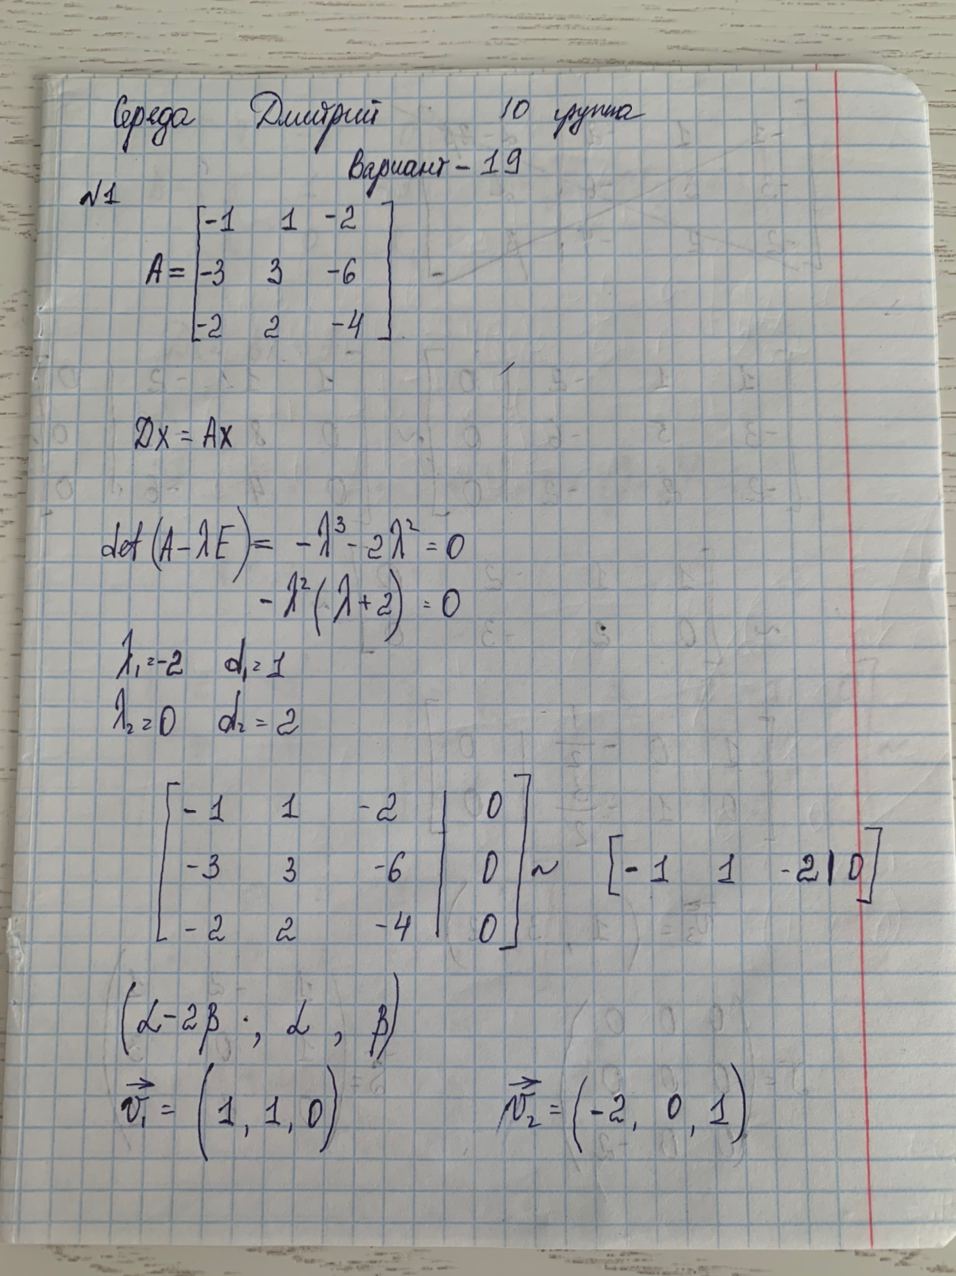 Середа Дмитрий 10 группа
Вариант - 19
№1
A = [-1 1 -2
-3 3 -6
-2 2 -4]
Dx = Ax
det(A-λE) = -λ³ - 2λ² = 0
-λ²(λ+2) = 0
λ₁=-2 d₁=1
λ₂=0 d₂=2
[-1 1 -2 | 0
-3 3 -6 | 0 ~ [-1 1 -2 | 0]
-2 2 -4 | 0]
(α-2β, α, β)
v⃗₁ = (1, 1, 0) v⃗₂ = (-2, 0, 1)